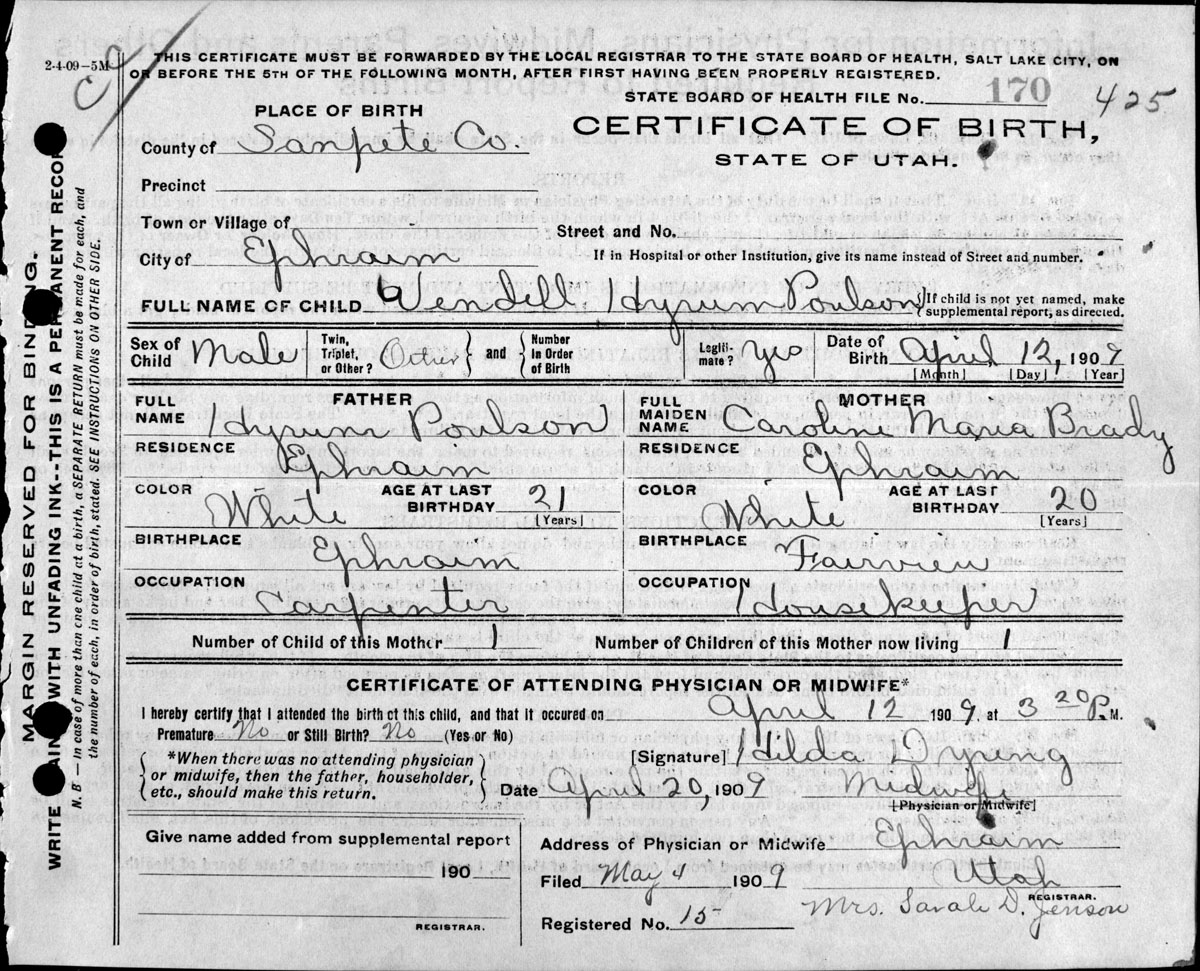 2-4-09-5M
THIS CERTIFICATE MUST BE FORWARDED BY THE LOCAL REGISTRAR TO THE STATE BOARD OF HEALTH, SALT LAKE CITY, ON
OR BEFORE THE 5TH OF THE FOLLOWING MONTH, AFTER FIRST HAVING BEEN PROPERLY REGISTERED.
STATE BOARD OF HEALTH FILE No. 170 425
PLACE OF BIRTH
CERTIFICATE OF BIRTH,
STATE OF UTAH.
County of Sanpete Co.
Precinct
Town or Village of
Street and No.
City of Ephraim
If in Hospital or other Institution, give its name instead of Street and number.
FULL NAME OF CHILD Wendell Hyrum Poulson {If child is not yet named, make
supplemental report, as directed.
Sex of Child Male Twin, Triplet, or Other? Other and Number in Order of Birth Legiti-mate? Yes Date of Birth April 12, 1909
[Month] [Day] [Year]
FATHER
FULL NAME Hyrum Poulson
RESIDENCE Ephraim
COLOR White AGE AT LAST BIRTHDAY 21 [Years]
BIRTHPLACE Ephraim
OCCUPATION Carpenter
MOTHER
FULL MAIDEN NAME Caroline Maria Brady
RESIDENCE Ephraim
COLOR White AGE AT LAST BIRTHDAY 20 [Years]
BIRTHPLACE Fairview
OCCUPATION Housekeeper
Number of Child of this Mother 1 Number of Children of this Mother now living 1
CERTIFICATE OF ATTENDING PHYSICIAN OR MIDWIFE*
I hereby certify that I attended the birth of this child, and that it occured on April 12 1909, at 3 20 P. M.
Premature No or Still Birth? No (Yes or No)
*When there was no attending physician
or midwife, then the father, householder,
etc., should make this return.
[Signature] Hilda Dyreng
Date April 20, 1909 Midwife
[Physician or Midwife]
Give name added from supplemental report
190
REGISTRAR.
Address of Physician or Midwife Ephraim
Filed May 4 1909 Utah
REGISTRAR.
Registered No. 15 Mrs. Sarah D. Jenson
MARGIN RESERVED FOR BINDING.
WRITE PLAINLY WITH UNFADING INK--THIS IS A PERMANENT RECORD
N. B — In case of more than one child at a birth, a SEPARATE RETURN must be made for each, and
the number of each, in order of birth, stated. SEE INSTRUCTIONS ON OTHER SIDE.